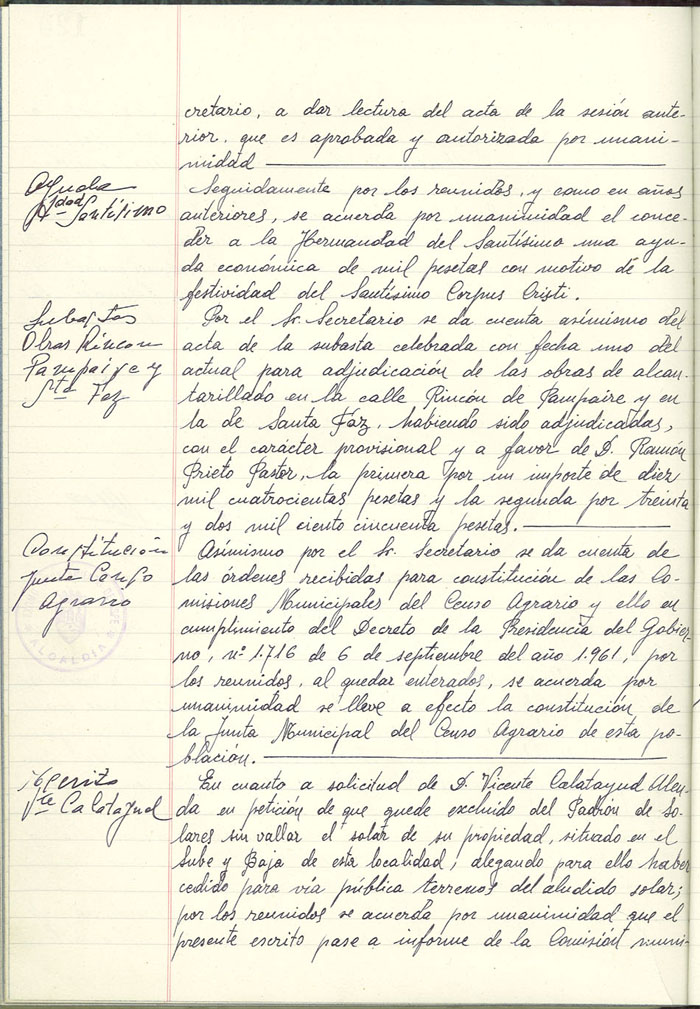 cretario, a dar lectura del acta de la sesión ante-
rior, que es aprobada y autorizada por unani-
midad
Ayuda
Hdad Santísimo
Seguidamente por los reunidos, y como en años
anteriores, se acuerda por unanimidad el conce-
der a la Hermandad del Santísimo una ayu-
da económica de mil pesetas con motivo de la
festividad del Santísimo Corpus Cristi.
Subastas
Obras Rincon
Pampaire y
Sta Faz
Por el Sr. Secretario se da cuenta asímismo del
acta de la subasta celebrada con fecha uno del
actual para adjudicación de las obras de alcan-
tarillado en la calle Rincón de Pampaire y en
la de Santa Faz, habiendo sido adjudicadas,
con el carácter provisional y a favor de D. Ramón
Prieto Pastor, la primera por un importe de diez
mil cuatrocientas pesetas y la segunda por treinta
y dos mil ciento cincuenta pesetas.
Constitución
Junta Censo
Agrario
Asímismo por el Sr. Secretario se da cuenta de
las órdenes recibidas para constitución de las Co-
misiones Municipales del Censo Agrario y ello en
cumplimiento del Decreto de la Presidencia del Gobier-
no, nº 1.716 de 6 de septiembre del año 1.961, por
los reunidos, al quedar enterados, se acuerda por
unanimidad se lleve a efecto la constitución de
la Junta Municipal del Censo Agrario de esta po-
blación.
ALCALDIA
Vte Calatayud
En cuanto a solicitud de D. Vicente Calatayud Alen-
da en petición de que quede excluido del Padrón de So-
lares sin vallar el solar de su propiedad, situado en el
Sube y Baja de esta localidad, alegando para ello haber
cedido para vía pública terrenos del aludido solar;
por los reunidos se acuerda por unanimidad que el
presente escrito pase a informe de la Comisión muni-